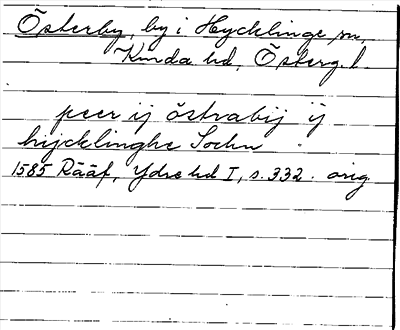 Österby, by i Hycklinge sn,
Kinda hd, Österg. l.
peer ij östrabij ij
hijcklinghe Sochn
1585 Rääf, Ydre hd I, s. 332. orig